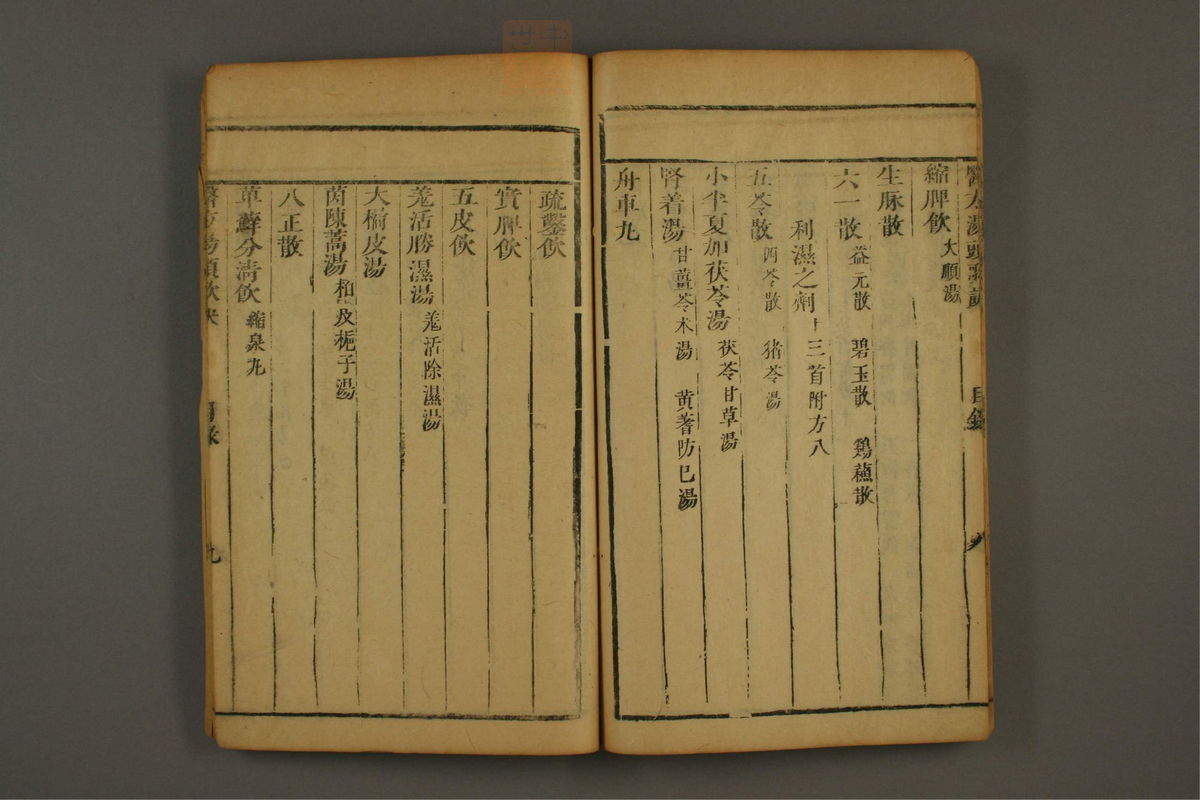 醫方湯頭歌訣 目錄 八
縮脾飲 大順湯
生脉散
六一散 益元散 碧玉散 鷄蘇散
利濕之劑 十三首附方八
五苓散 四苓散 猪苓湯
小半夏加茯苓湯 茯苓甘草湯
腎着湯 甘薑苓术湯 黄蓍防巳湯
舟車丸
疏鑿飲
實脾飲
五皮飲
羗活勝濕湯 羗活除濕湯
大橘皮湯
茵陳蒿湯 柏皮梔子湯
八正散
萆薢分清飲 縮泉丸
目錄 九